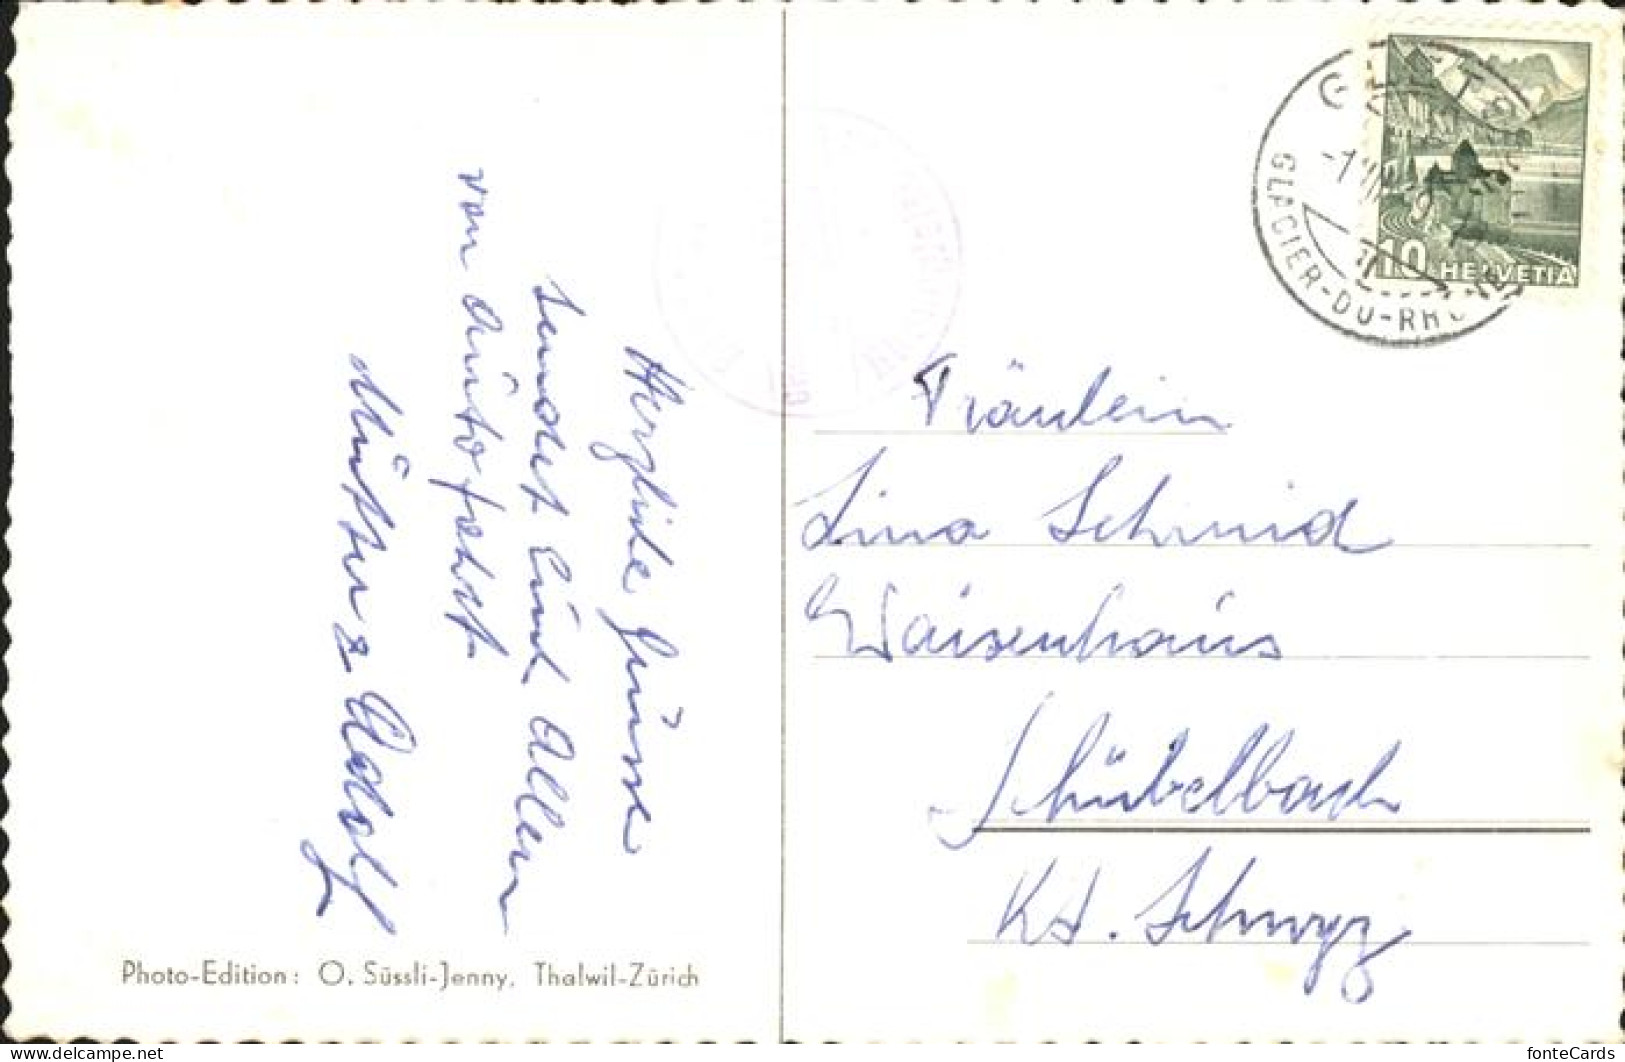 Herzliche Grüsse
sendet Euch Allen
von Autofahrt.
Mutter & Adolf
Photo-Edition: O. Süssli-Jenny, Thalwil-Zürich
GLETSCH
GLACIER-DU-RHONE
10 HELVETIA
Fräulein
Lina Schmid
Waisenhaus
Schübelbach
Kt. Schwyz
fonteCards